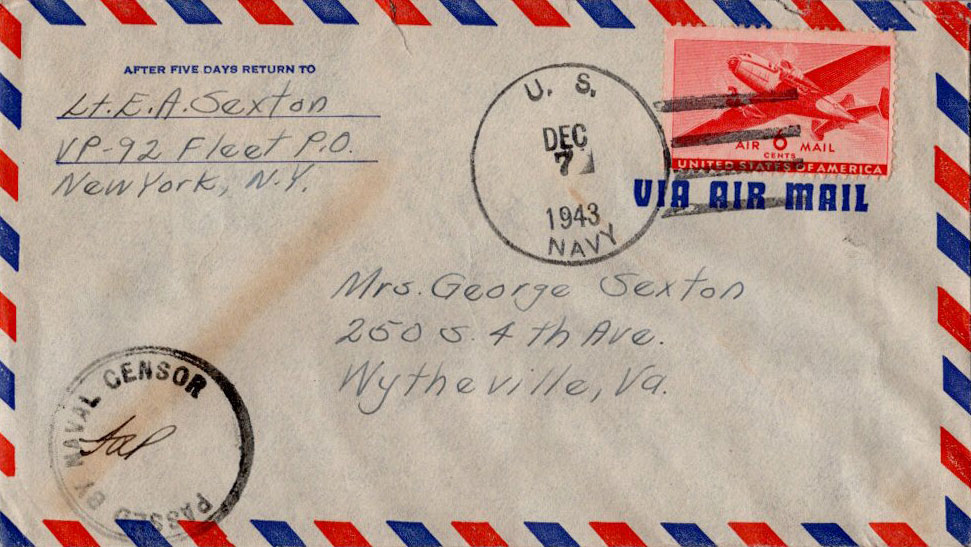 AFTER FIVE DAYS RETURN TO
Lt. E. A. Sexton
VP-92 Fleet P.O.
New York, N.Y.
U. S.
DEC
7
1943
NAVY
AIR 6 MAIL
CENTS
UNITED STATES OF AMERICA
VIA AIR MAIL
Mrs. George Sexton
250 S. 4th Ave.
Wytheville, Va.
PASSED BY NAVAL CENSOR